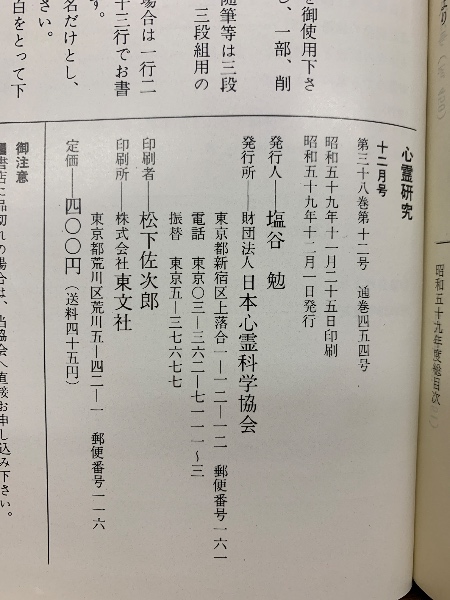 昭和五十九年度総目次
心霊研究
十二月号
第三十八巻第十二号　通巻四五四号
昭和五十九年十一月二十五日印刷
昭和五十九年十二月一日発行
発行人――塩谷　勉
発行所――財団法人日本心霊科学協会
東京都新宿区上落合一―一二―一二　郵便番号一六一
電話　東京〇三―三六二―七一一一～三
振替　東京五―三七六七七
印刷者――松下佐次郎
印刷所――株式会社東文社
東京都荒川区荒川五―四二―一　郵便番号一一六
定価――四〇〇円（送料四十五円）
御注意
書店に品切れの場合は、当協会へ直接お申し込み下さい。
を御使用下さ
し、一部、削
随筆等は三段
三段組用の
場合は一行二
十三行でお書
す。
名だけとし、
白をとって下
さい。